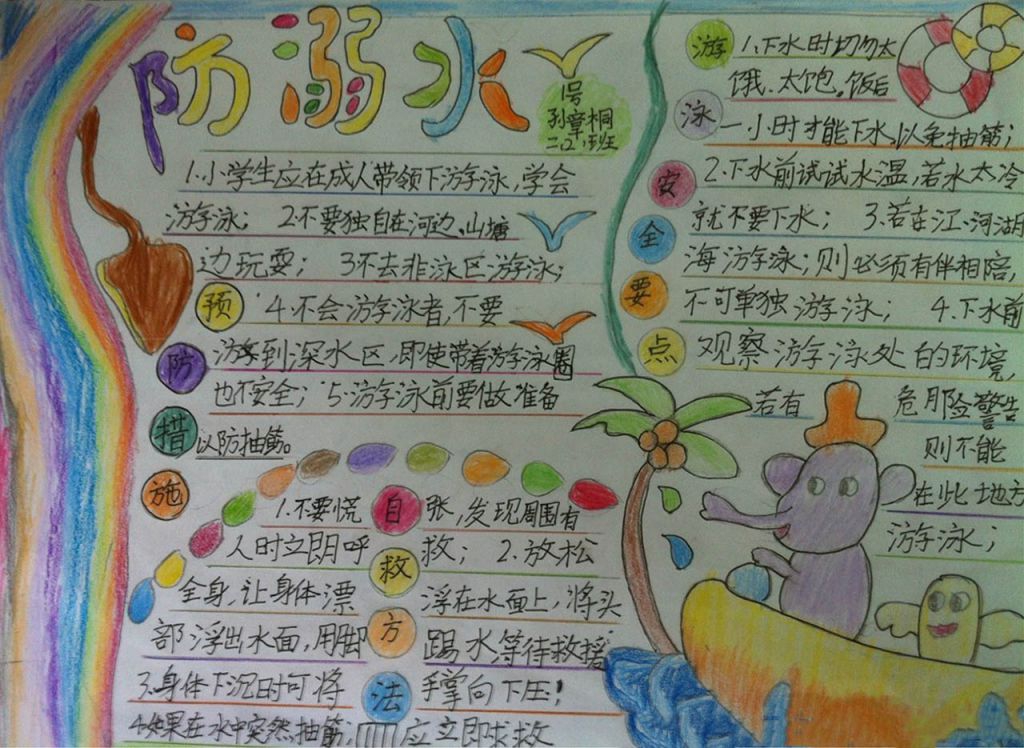 防溺水
1号
孙章桐
二.(2).班
1.小学生应在成人带领下游泳,学会
游泳; 2.不要独自在河边、山塘
边玩耍; 3不去非泳区游泳;
4.不会游泳者,不要
游到深水区,即使带着游泳圈
也不安全; 5.游泳前要做准备
以防抽筋。
预防措施
1.不要慌张,发现周围有
人时立即呼救; 2.放松
全身,让身体漂浮在水面上,将头
部浮出水面,用脚踢水等待救援
3.身体下沉时可将手掌向下压!
4.如果在水中突然抽筋,应立即求救
自救方法
游泳安全要点
1.下水时切勿太
饿、太饱,饭后
一小时才能下水,以免抽筋;
2.下水前试试水温,若水太冷
就不要下水; 3.若在江.河湖
海游泳;则必须有伴相陪,
不可单独游泳; 4.下水前
观察游泳处的环境,
若有危险警告
则不能
在此地方
游泳;